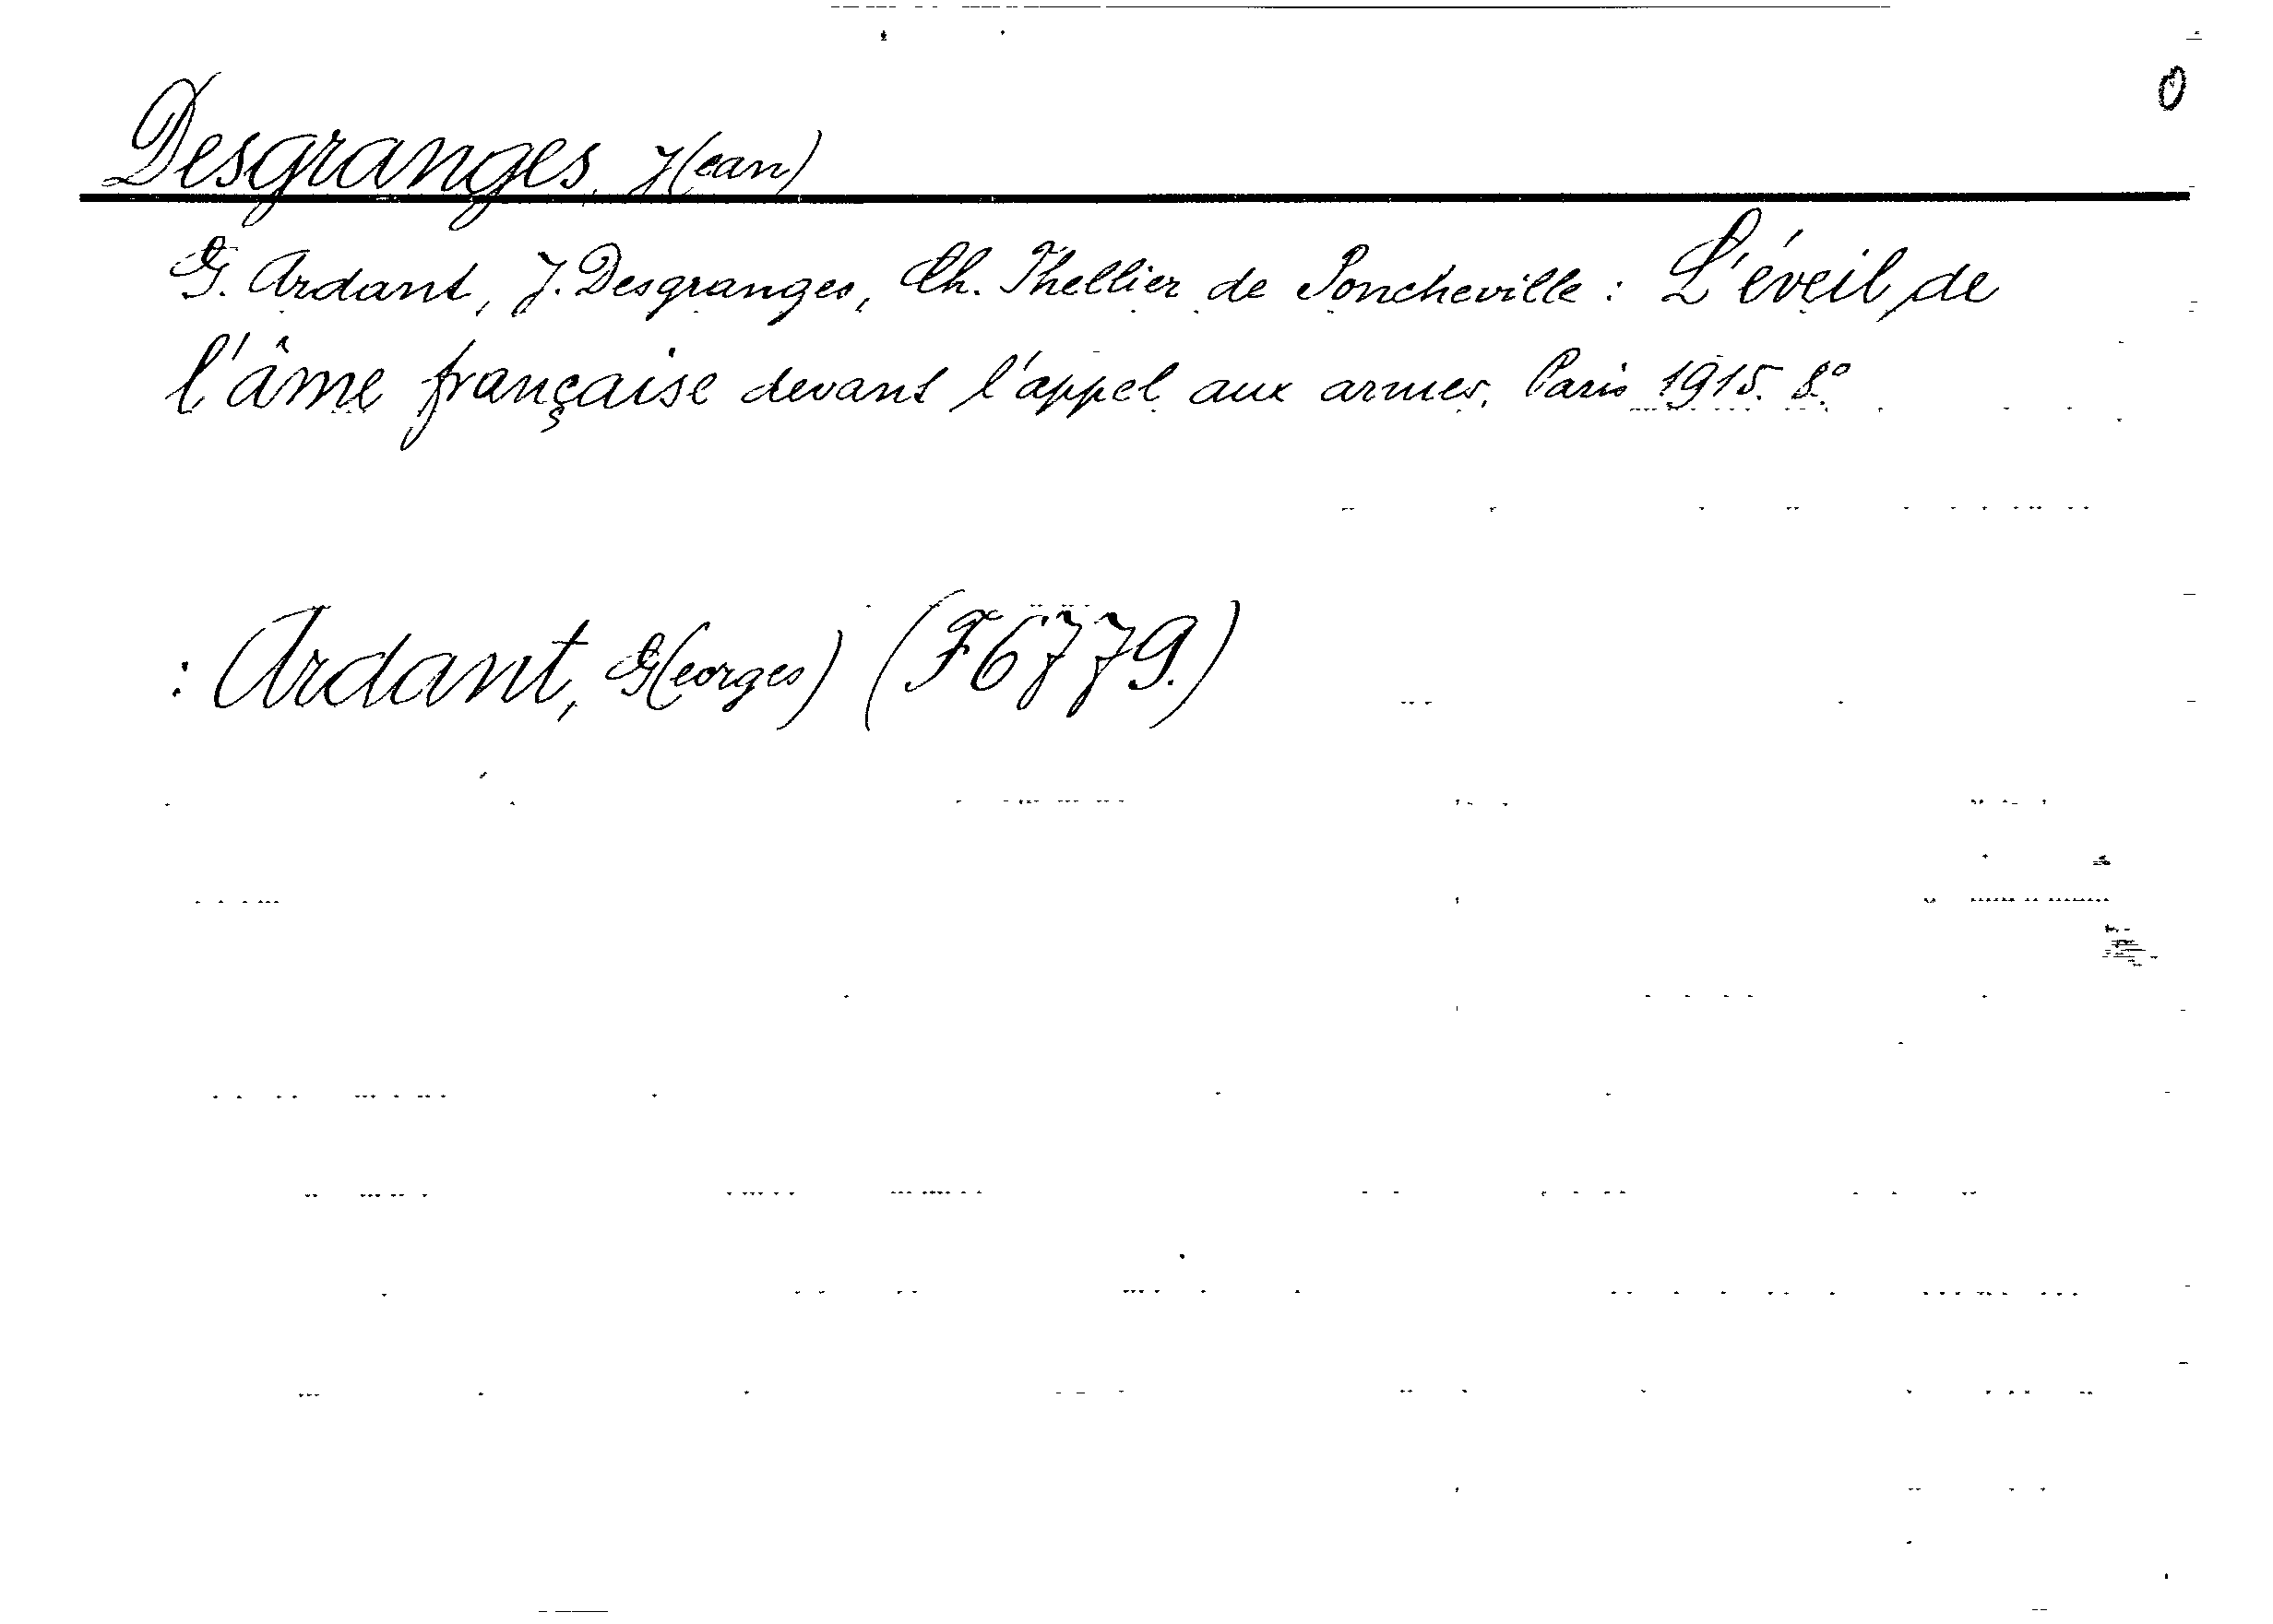 O
Desgranges, J(ean)
G. Ardant, J. Desgranges, Ch. Thellier de Poncheville : L'éveil de
l'âme française devant l'appel aux armes. Paris 1915. 8°
: Ardant, G(eorges) (F6779.)